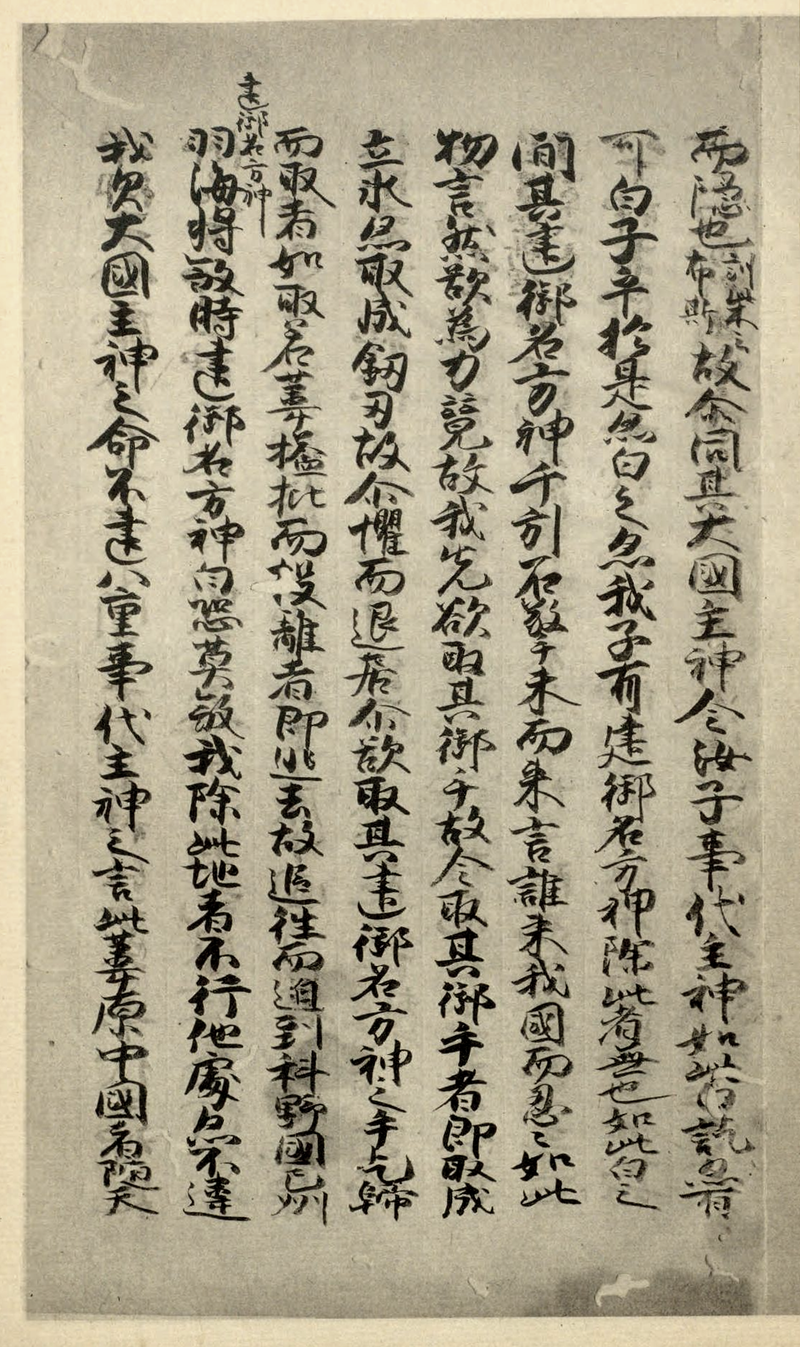 而隠也訓柴云布斯故尒問其大國主神今汝子事代主神如此白訖亦有
可白子乎於是亦白之亦我子有建御名方神除此者無也如此白之
間其建御名方神千引石擎手末而来言誰来我國而忍々如此
物言然欲為力競故我先欲取其御手故令取其御手者即取成
立氷亦取成釼刃故尒懼而退居尒欲取其建御名方神之手乞歸
而取者如取若葦搤批而投離者即逃去故追往而迫到科野國之州
建御名方神
羽海将敓時建御名方神白恐莫敓我除此地者不行他處亦不違
我父大國主神之命不違八重事代主神之言此葦原中國者随天